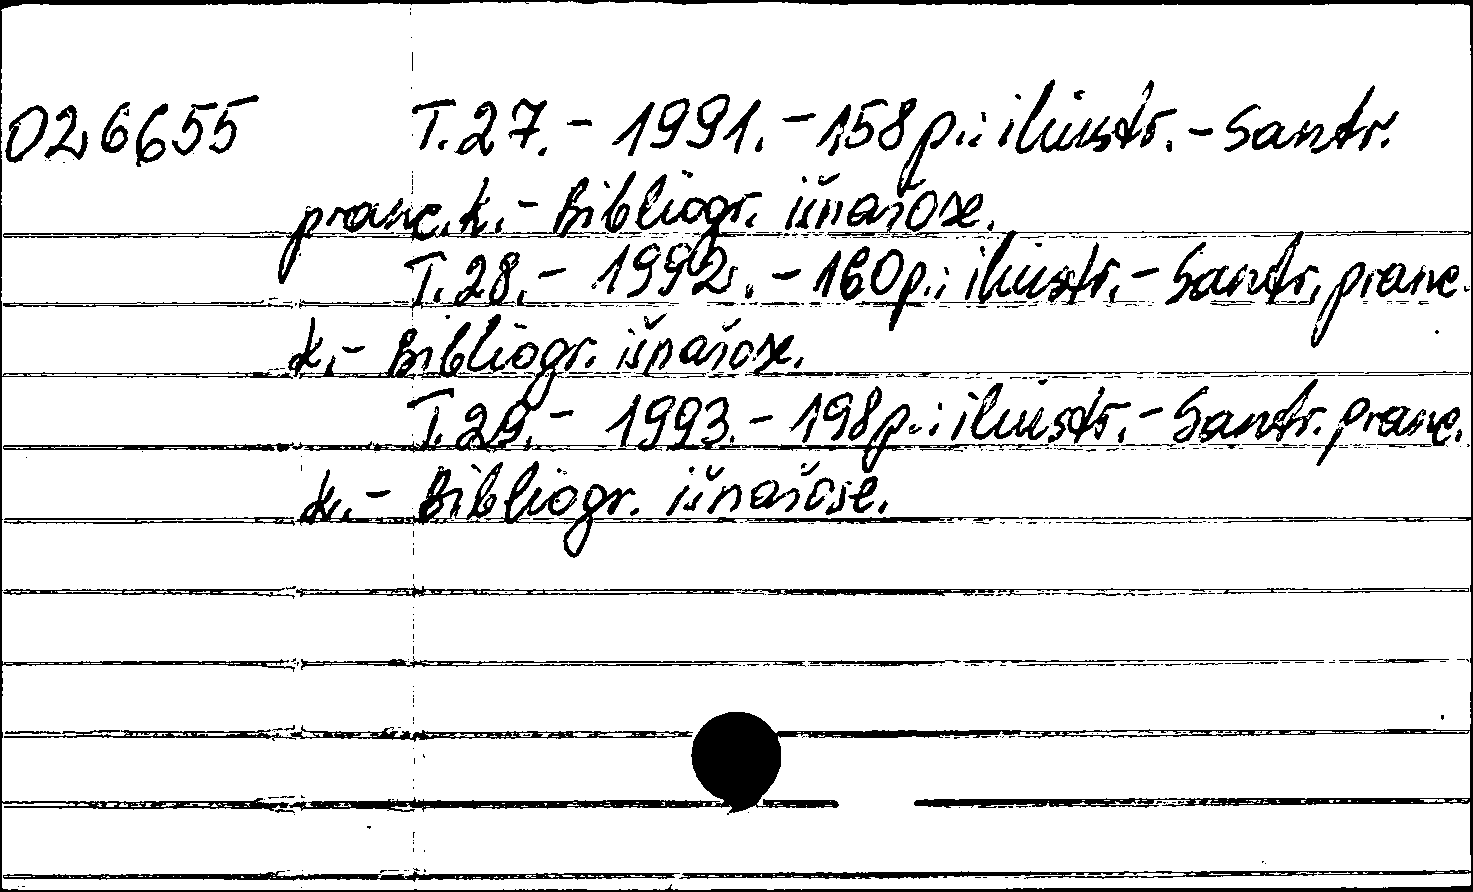 026655 T. 27. - 1991. - 158 p.: iliustr. - Santr.
pranc. k. - Bibliogr. išnašose.
T. 28. - 1992. - 160 p.: iliustr. - Santr. pranc.
k. - Bibliogr. išnašose.
T. 29. - 1993. - 198 p.: iliustr. - Santr. pranc.
k. - Bibliogr. išnašose.